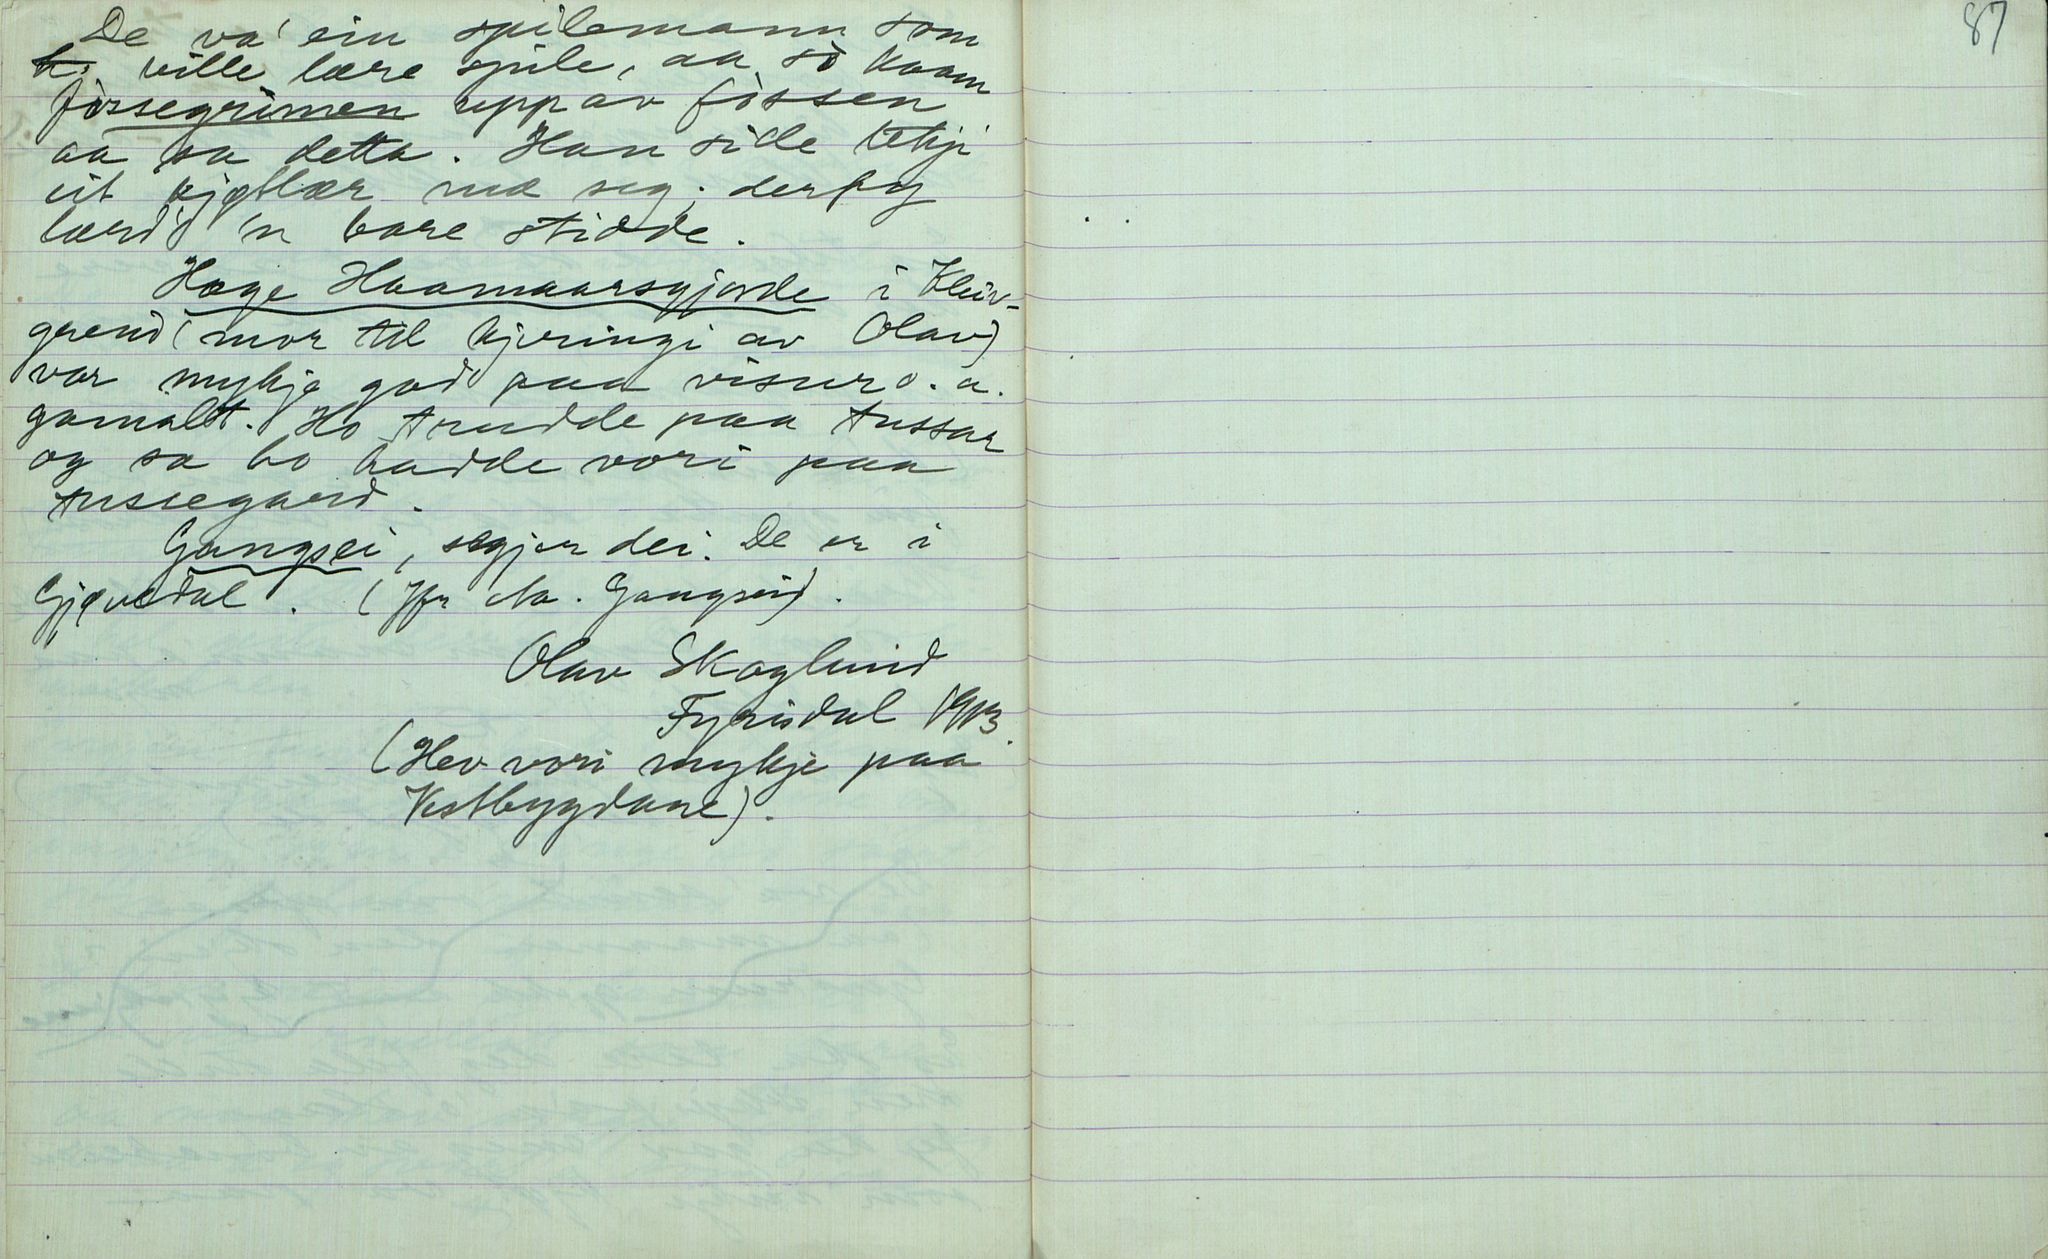 De va' ein spilemann som
h. ville lære spile, aa so kaam
fossegrimen upp av fossen
aa sa detta. Han sille tekje
eit kjøtlær mæ seg; derfy
lærd' 'n bare stidde.
Hæge Haamaarsgjorde i Kleiv-
grend (mor til kjeringi av Olav)
var mykje god paa visur o. a.
gamalt. Ho trudde paa tussar
og sa ho hadde vori paa
tussegard.
Gangsei, segjer dei. De er i
Gjøvedal. (Jfr Aa. Gangsei).
Olav Skoglund
Fyrisdal 1913.
(Hev vori mykje paa
Vestbygdane).
87